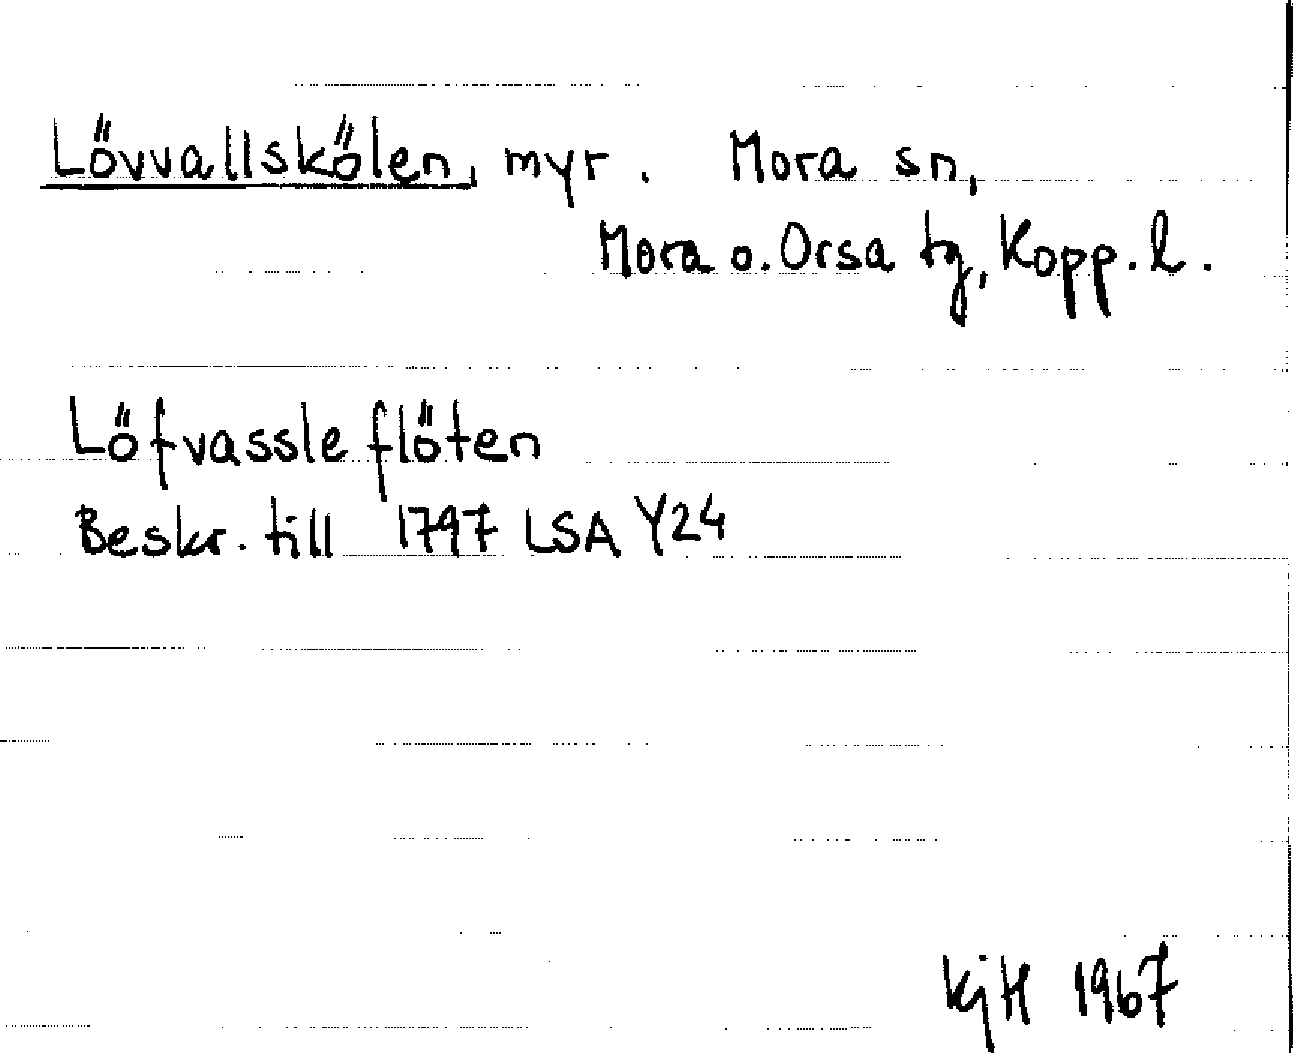 Lövvallskölen, myr. Mora sn,
Mora o. Orsa tg, Kopp. l.
Löfvassle flöten
Beskr. till 1797 LSA Y24
KjH 1967